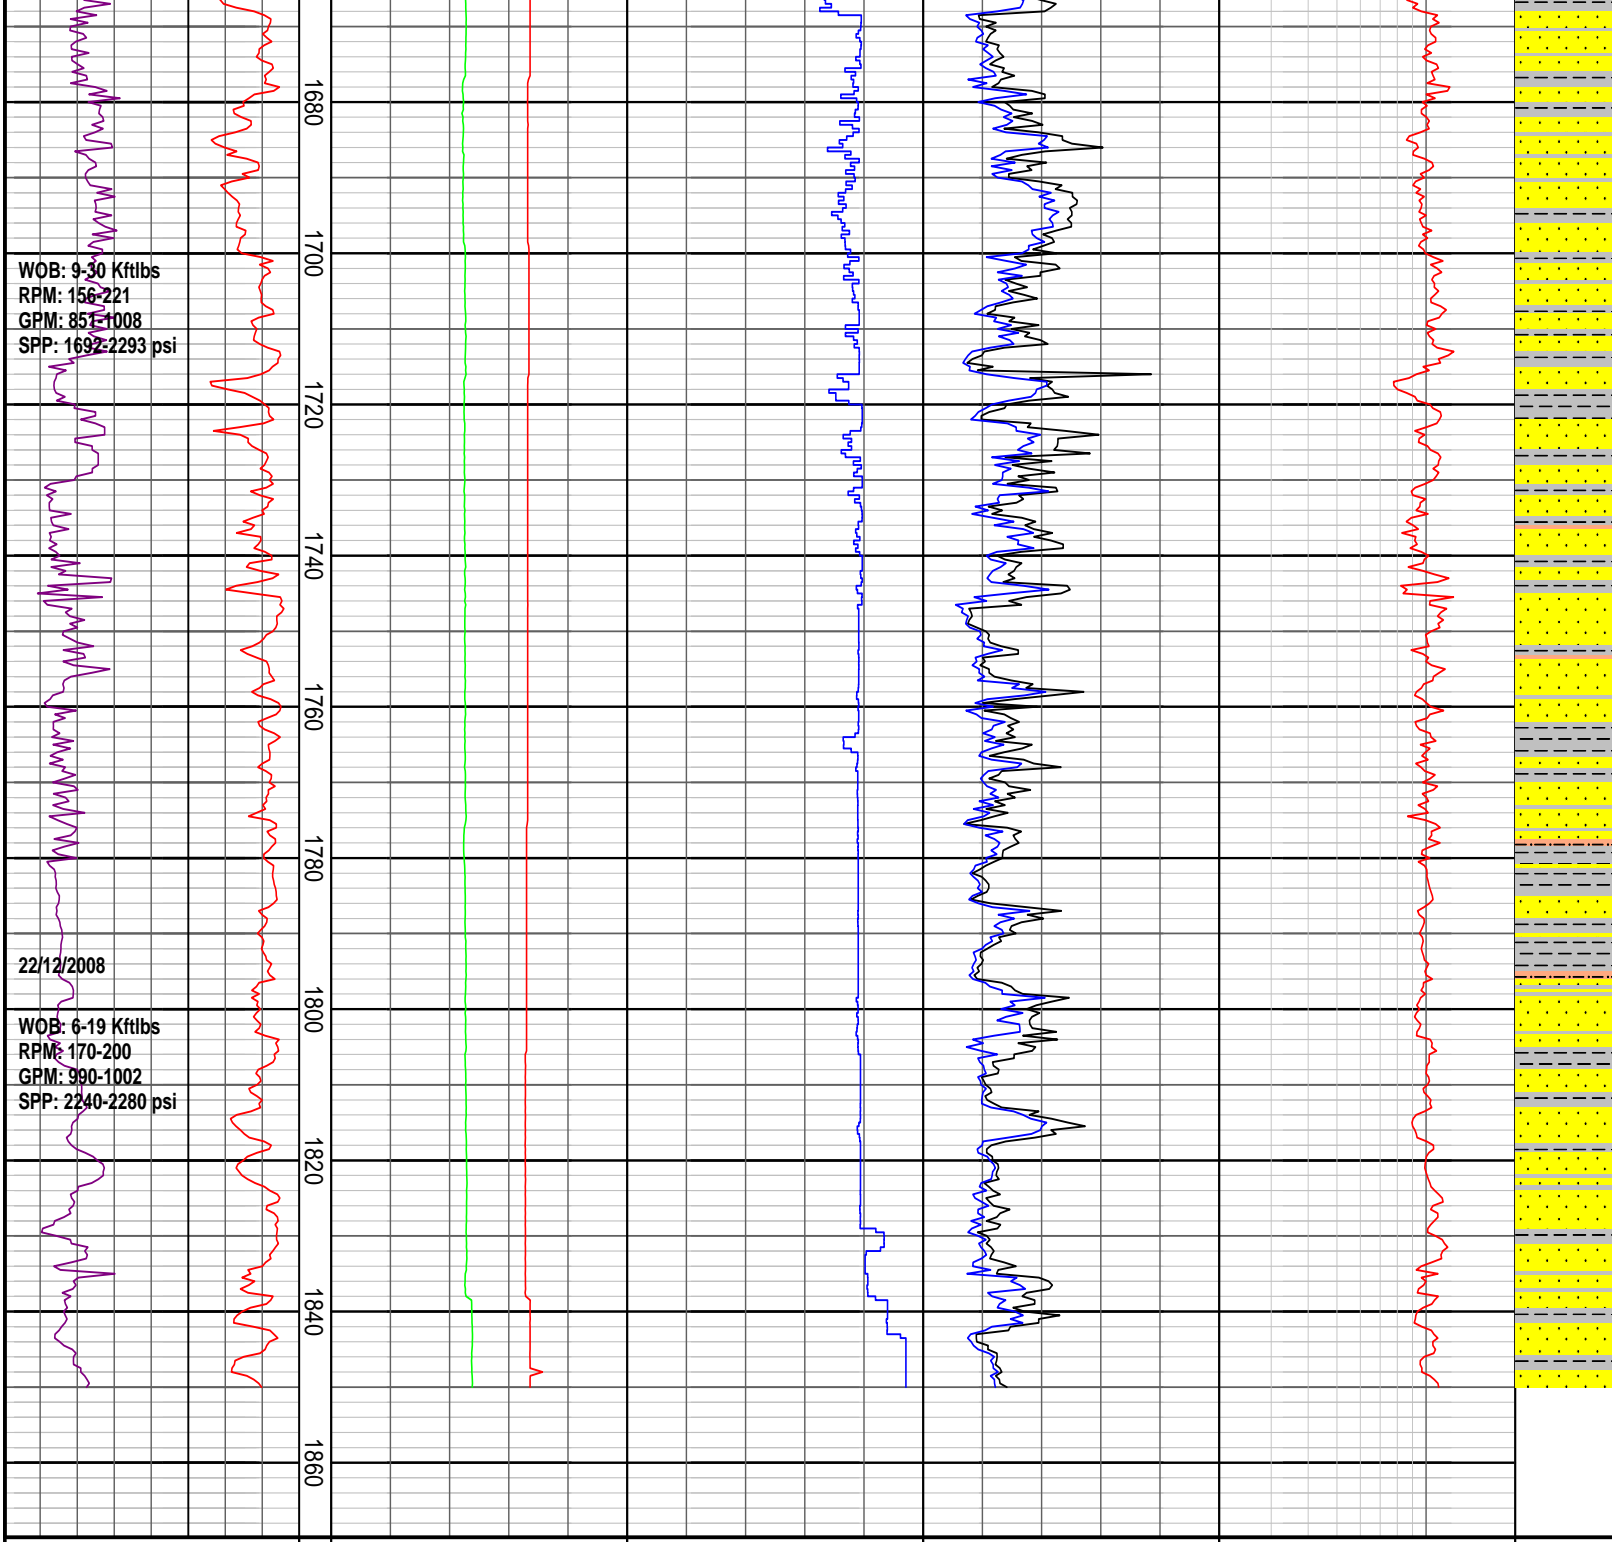 1680
1700
WOB: 9-30 Kftlbs
RPM: 156-221
GPM: 851-1008
SPP: 1692-2293 psi
1720
1740
1760
1780
22/12/2008
1800
WOB: 6-19 Kftlbs
RPM: 170-200
GPM: 990-1002
SPP: 2240-2280 psi
1820
1840
1860